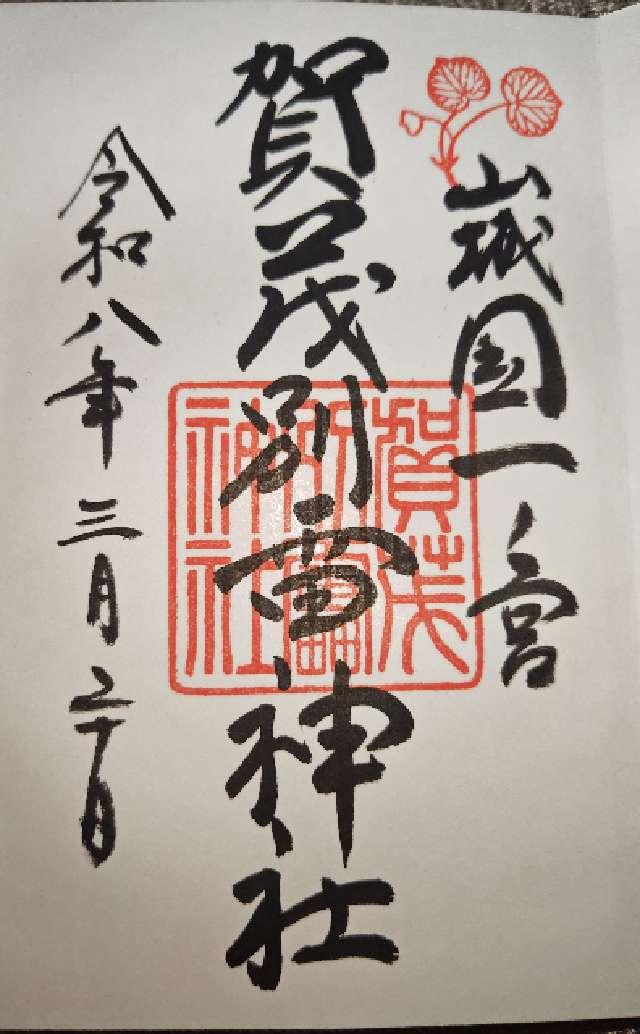 山城国一ノ宮
賀茂別雷神社
賀茂別雷神社
令和八年三月二十日